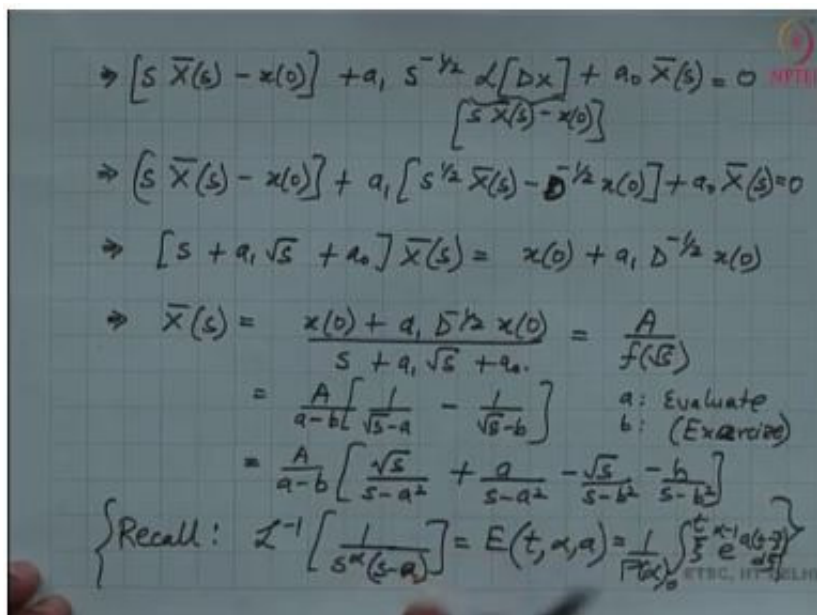 ⇒ [s X̄(s) − x(0)] + a₁ s^{-1/2} ℒ[Dx] + a₀ X̄(s) = 0
[s X̄(s) − x(0)]
NPTEL
⇒ [s X̄(s) − x(0)] + a₁ [s^{1/2} X̄(s) − D^{-1/2} x(0)] + a₀ X̄(s) = 0
⇒ [s + a₁ √s + a₀] X̄(s) = x(0) + a₁ D^{-1/2} x(0)
⇒ X̄(s) = (x(0) + a₁ D^{-1/2} x(0)) / (s + a₁ √s + a₀.) = A / f(√s)
= A/(a−b) [1/(√s−a) − 1/(√s−b)] a: Evaluate
b: (Exercise)
= A/(a−b) [√s/(s−a²) + a/(s−a²) − √s/(s−b²) − b/(s−b²)]
{Recall: ℒ⁻¹ [1/(s^α(s−a))] = E(t, α, a) = 1/Γ(α) ∫₀^t ξ^{α−1} e^{a(t−ξ)} dξ}
ETSC, IIT DELHI